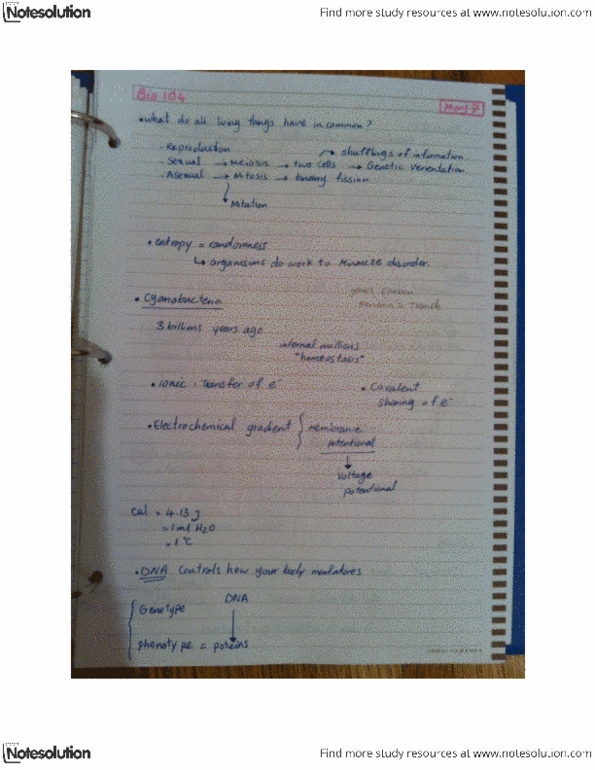 Notesolution
Find more study resources at www.notesolution.com
Bio 104
May 7
• what do all living things have in common?
. Reproduction → shufflings of information
Sexual → Meiosis → two cells → Genetic
. Asexual → Mitosis → binary fission
• entropy = randomness
↳ organisims do work to disorder.
• Cyanobacteria
3 billions years ago
internal
"homeostasis"
• ionic . transfer of e⁻
• Covalent
sharing of e⁻
• Electrochemical gradient { Membrane
potentional
↓
voltage
potentional
Cal = 4.13 J
= 1 ml H₂O
= 1°C
• DNA controls how your body
Genotype DNA
↓
phenotype = poteins
Notesolution
Find more study resources at www.notesolution.com